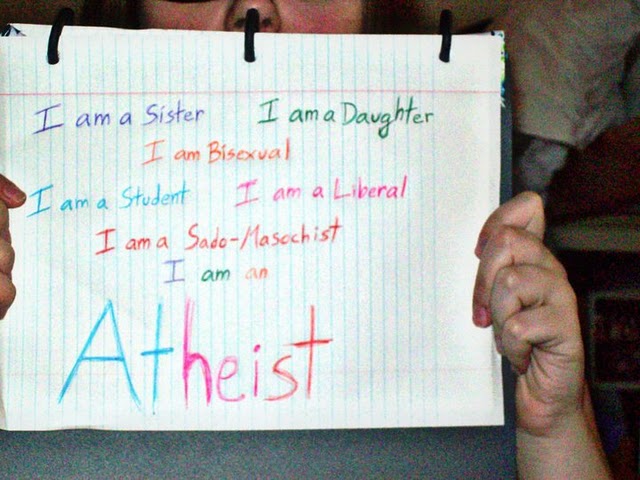 I am a Sister I am a Daughter
I am Bisexual
I am a Student I am a Liberal
I am a Sado-Masochist
I am an
Atheist